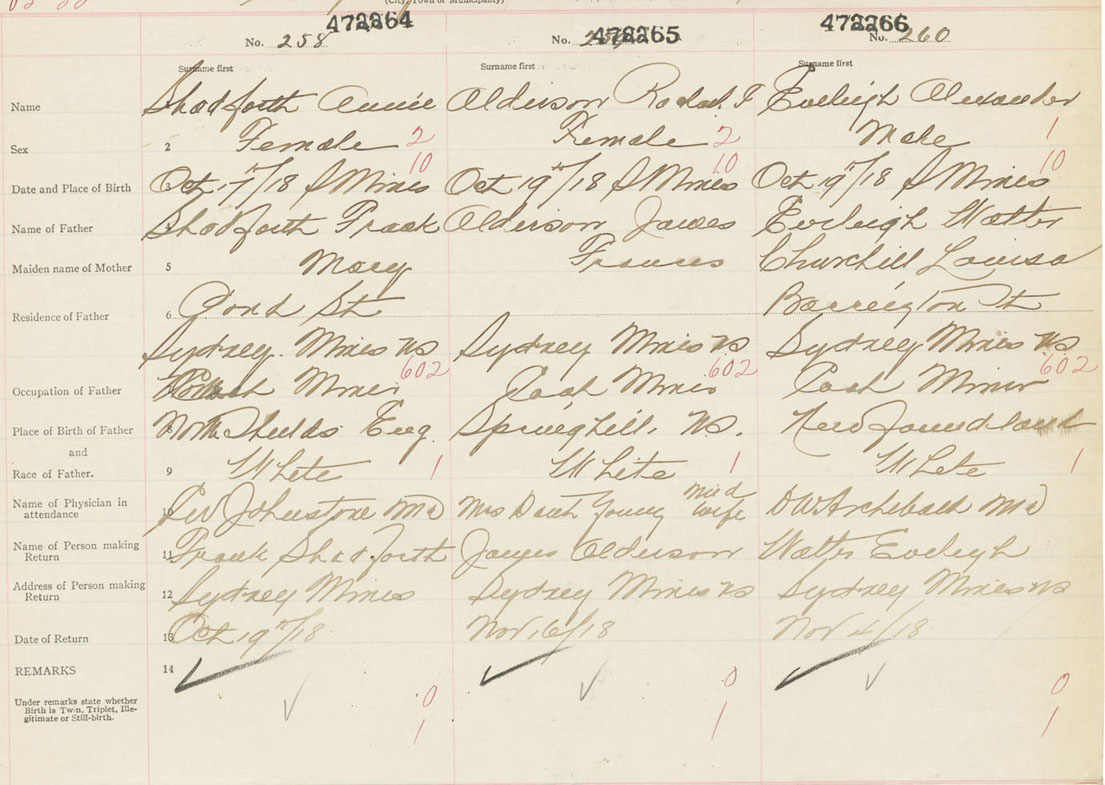 (City, Town or Municipality)
472264 472265 472266
No. 258 No. No. 260
Surname first Surname first Surname first
Name Shadforth Annie Alderson Rachel F Eveleigh Alexander
Sex 2 Female 2 Female 2 Male 1
10 10 10
Date and Place of Birth Oct 17th/18 S Mines Oct 19th/18 S Mines Oct 19th/18 S Mines
Name of Father Shadforth Frank Alderson James Eveleigh Walter
Maiden name of Mother 5 Mary Frances Churchill Louisa
Residence of Father 6 Pond St Barrington St
Sydney Mines NS Sydney Mines NS Sydney Mines NS
602 602 602
Occupation of Father Coal Miner Coal Miner Coal Miner
Place of Birth of Father 8 North Shields Eng Springhill. NS. Newfoundland
and
Race of Father. 9 White 1 White 1 White 1
Name of Physician in attendance 10 Johnstone MD Mrs Young midwife DW Archibald MD
Name of Person making Return 11 Frank Shadforth James Alderson Walter Eveleigh
Address of Person making Return 12 Sydney Mines Sydney Mines NS Sydney Mines NS
Date of Return 13 Oct 19th/18 Nov 16/18 Nov 4/18
REMARKS 14
Under remarks state whether Birth is Twin, Triplet, Ille-
gitimate or Still-birth.
0 0 0
1 1 1